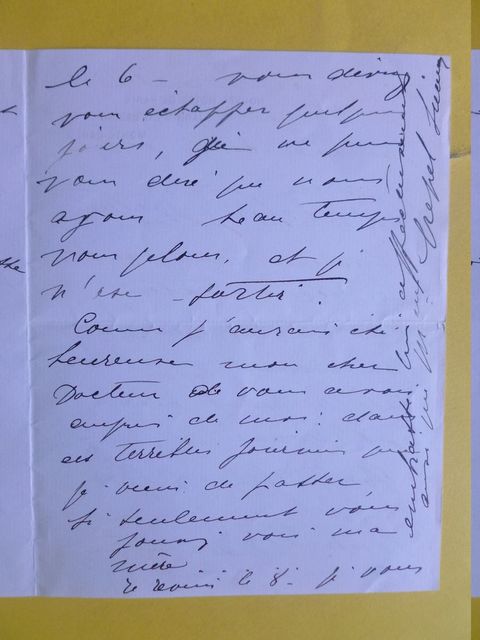 le 6 - vous devriez
vous échapper quelques
jours, je ne puis
vous dire que nous
ayons beau temps
nous gelons, et je
n'ose sortir.
Comme j'aurais été
heureuse mon cher
Docteur de vous avoir
auprès de moi dans
ces terribles journées que
je viens de passer
si seulement vous
pouviez voir ma
mère
le 8 - je vous
embrasse bien affectueusement
ainsi que